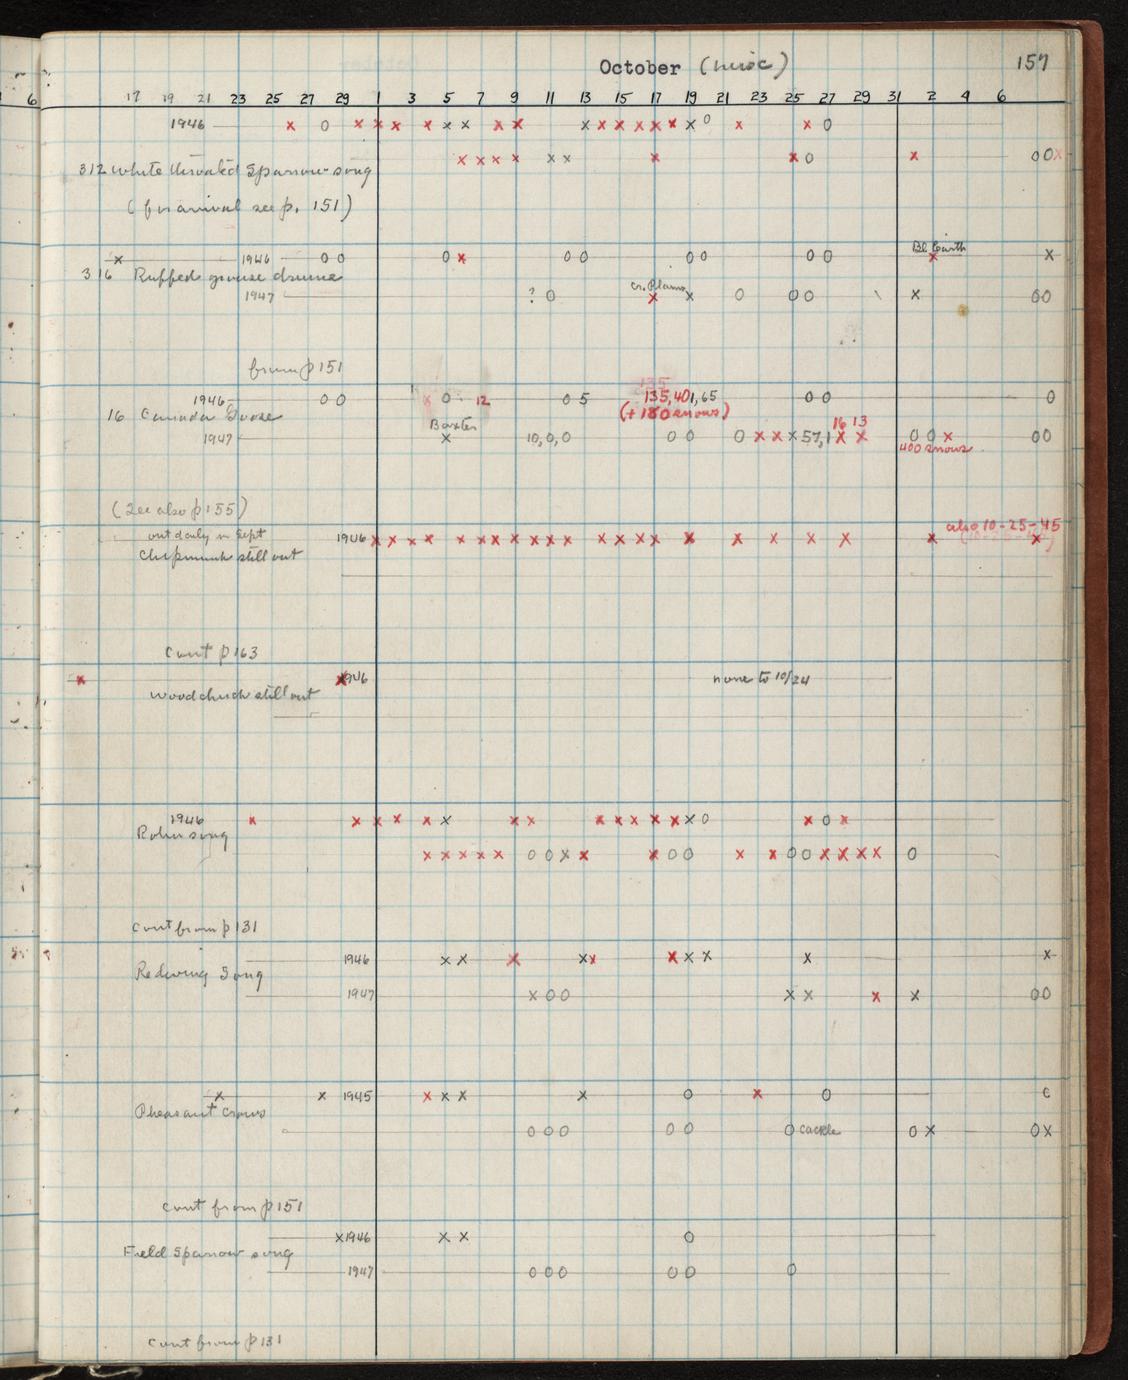 October (misc) 157
6 17 19 21 23 25 27 29 1 3 5 7 9 11 13 15 17 19 21 23 25 27 29 31 2 4 6
1946 x 0 x x x x x x x x x x x x x x x 0 x x 0
x x x x x x x x 0 x 0 0 x
312 White throated Sparrow song
(for arrival see p. 151)
Bl. Earth
x 1946 0 0 0 x 0 0 0 0 0 0 x x
316 Ruffed grouse drums
cr. Plains
1947 ? 0 x x 0 0 0 \ x 0 0
from p 151
135
1946 0 0 x 0 12 0 5 135,401,65 0 0 0
16 Canada Goose (+ 180 snows)
Baxter 16 13
1947 x 10,0,0 0 0 0 x x x 57,1 x x 0 0 x 0 0
400 snows
(See also p 155)
also 10-25-45
out daily in Sept
1946 x x x x x x x x x x x x x x x x x x x x x x
chipmunk still out
Cont p 163
x x 1946 none to 10/24
woodchuck still out
1946 x x x x x x x x x x x x x x 0 x 0 x
Robin song
x x x x x 0 0 x x x 0 0 x x 0 0 x x x x 0
cont from p 131
1946 x x x x x x x x x x
Redwing Song
1947 x 0 0 x x x x 0 0
x x 1945 x x x x 0 x 0 c
Pheasant crows
0 0 0 0 0 0 cackle 0 x 0 x
cont from p 151
x 1946 x x 0
Field Sparrow song
1947 0 0 0 0 0 0
cont from p 131